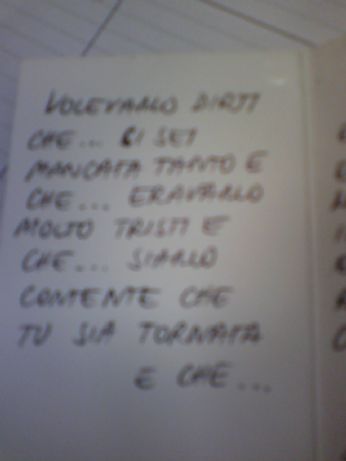 VOLEVAMO DIRTI
CHE... CI SEI
MANCATA TANTO E
CHE... ERAVAMO
MOLTO TRISTI E
CHE... SIAMO
CONTENTE CHE
TU SIA TORNATA
E CHE...